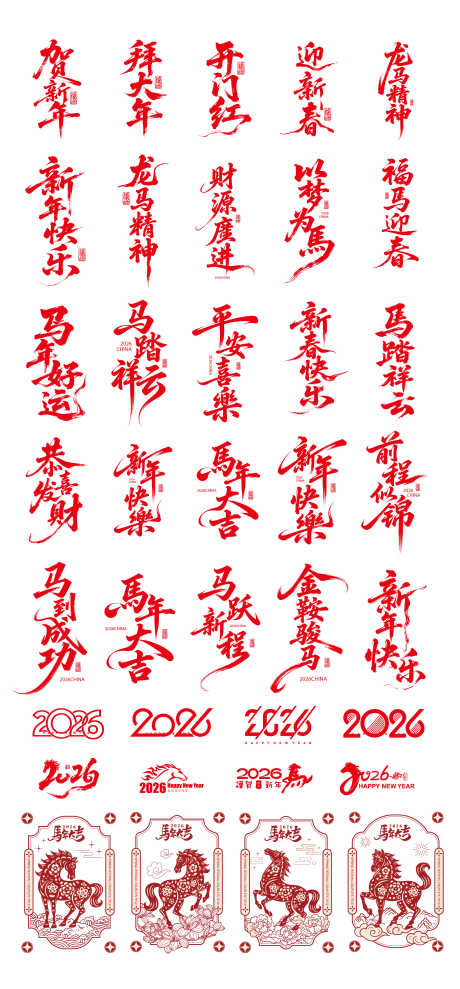 贺新年
拜大年
开门红
迎新春
龙马精神
新年快乐
龙马精神
财源广進
以梦为馬
福馬迎春
马年好运
马踏祥云
2026
CHINA
平安喜樂
新春快乐
馬踏祥云
恭喜发財
新年快樂
馬年大吉
2026CHINA
新年快樂
前程似锦
2026
CHINA
马到成功
2026CHINA
馬年大吉
2026CHINA
马跃新程
金鞍骏马
2026CHINA
新年快乐
2026
2026
2026
HAPPY NEW YEAR
2026
2026
2026
Happy New Year
2026
謹賀新年
馬
2026
HAPPY NEW YEAR
2026
馬年大吉
2026
馬年大吉
2026
馬年大吉
2026
馬年大吉